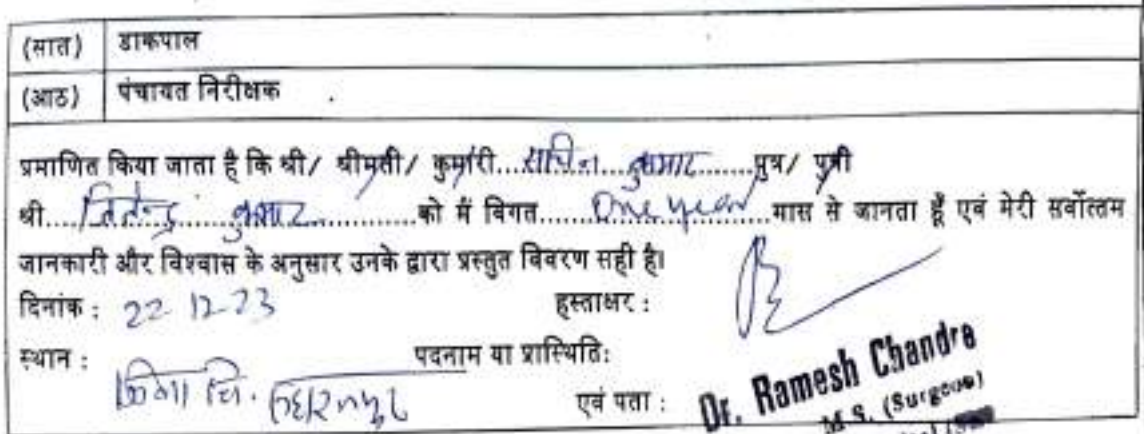 (सात) डाकपाल
(आठ) पंचायत निरीक्षक
प्रमाणित किया जाता है कि श्री/ श्रीमती/ कुमारी....सचिन....कुमार.......पुत्र/ पुत्री
श्री....जितेन्द्र....कुमार............को मैं विगत.......One year..मास से जानता हूँ एवं मेरी सर्वोत्तम
जानकारी और विश्वास के अनुसार उनके द्वारा प्रस्तुत विवरण सही है।
दिनांक : 22-12-23 हस्ताक्षर :
स्थान : पदनाम या प्रास्थिति:
चि. सहारनपुर एवं पता :
Dr. Ramesh Chandra
M.S. (Surgeon)